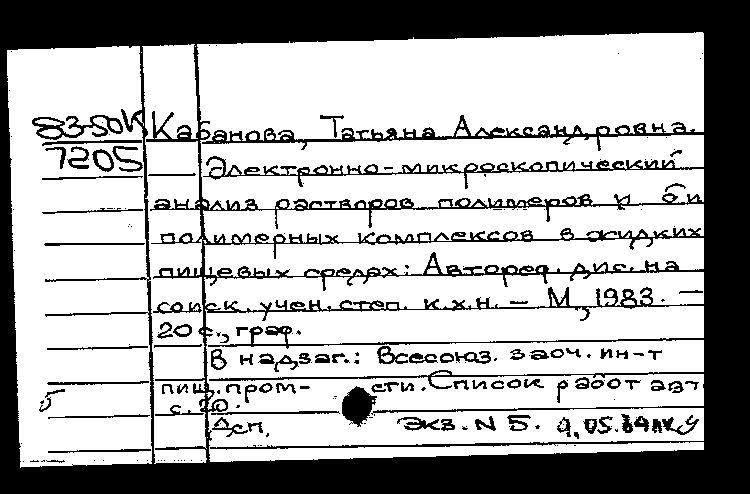 83-50К Кабанова, Татьяна Александровна.
7205 Электронно-микроскопический
анализ растворов полимеров и би
полимерных комплексов в жидких
пищевых средах: Автореф. дис. на
соиск. учен. степ. к.х.н. – М., 1983. –
20 с., граф.
В надзаг.: Всесоюз. заоч. ин-т
пищ. пром-сти. Список работ авт.
с. 20.
Б
Дсп. Экз. N 5. 9.05.84